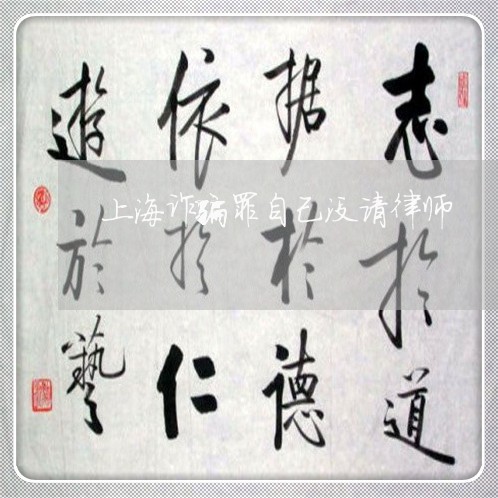 志於道
据於德
依於仁
遊於藝
上海诈骗罪自己没请律师